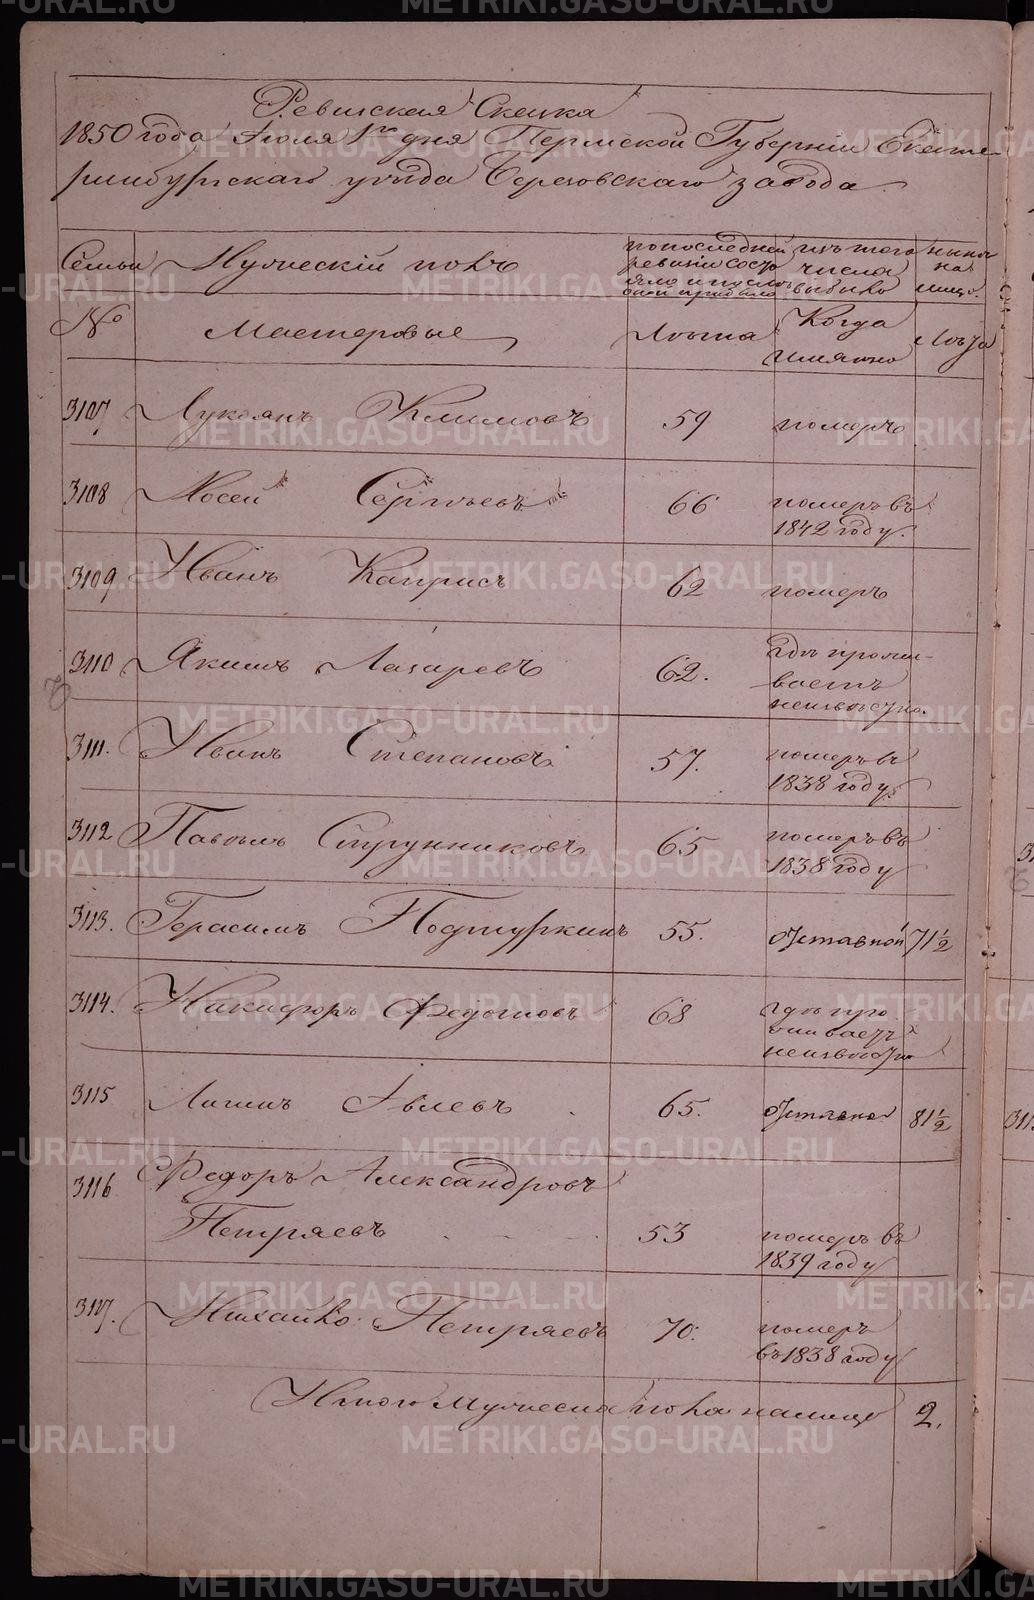 Ревизская Сказка
1850 года Июля 1го дня Пермской Губерніи Екате-
ринбургскаго уѣзда Березовскаго завода
Семьи Мужескій полъ по последней изъ того нынѣ
ревизіи состо числа на
яло и после выбыло лицо.
оной прибыло
№ Мастеровые Лѣта Когда Лѣта
именно
3107 Лукоянъ Климовъ 59 померъ
3108 Мосей Сергѣевъ 66 померъ въ
1842 году.
3109 Иванъ Каприсъ 62 померъ
3110 Якимъ Лазаревъ 62. гдѣ прожи-
ваетъ
неизвѣстно.
3111. Иванъ Степановъ 57. померъ въ
1838 году
3112 Павелъ Струнниковъ 65 померъ въ
1838 году
3113. Герасимъ Подтуркинъ 55. отставной 71½
3114. Никифоръ Федотовъ 68 гдѣ про
живаетъ
неизвѣстно
3115 Логинъ Іевлевъ 65. отставной 81½
3116 Федоръ Александровъ
Петряевъ 53 померъ въ
1839 году
3117. Михайло Петряевъ 70. померъ
въ 1838 году
Итого мужеска пола на лицо 2.
METRIKI.GASO-URAL.RU